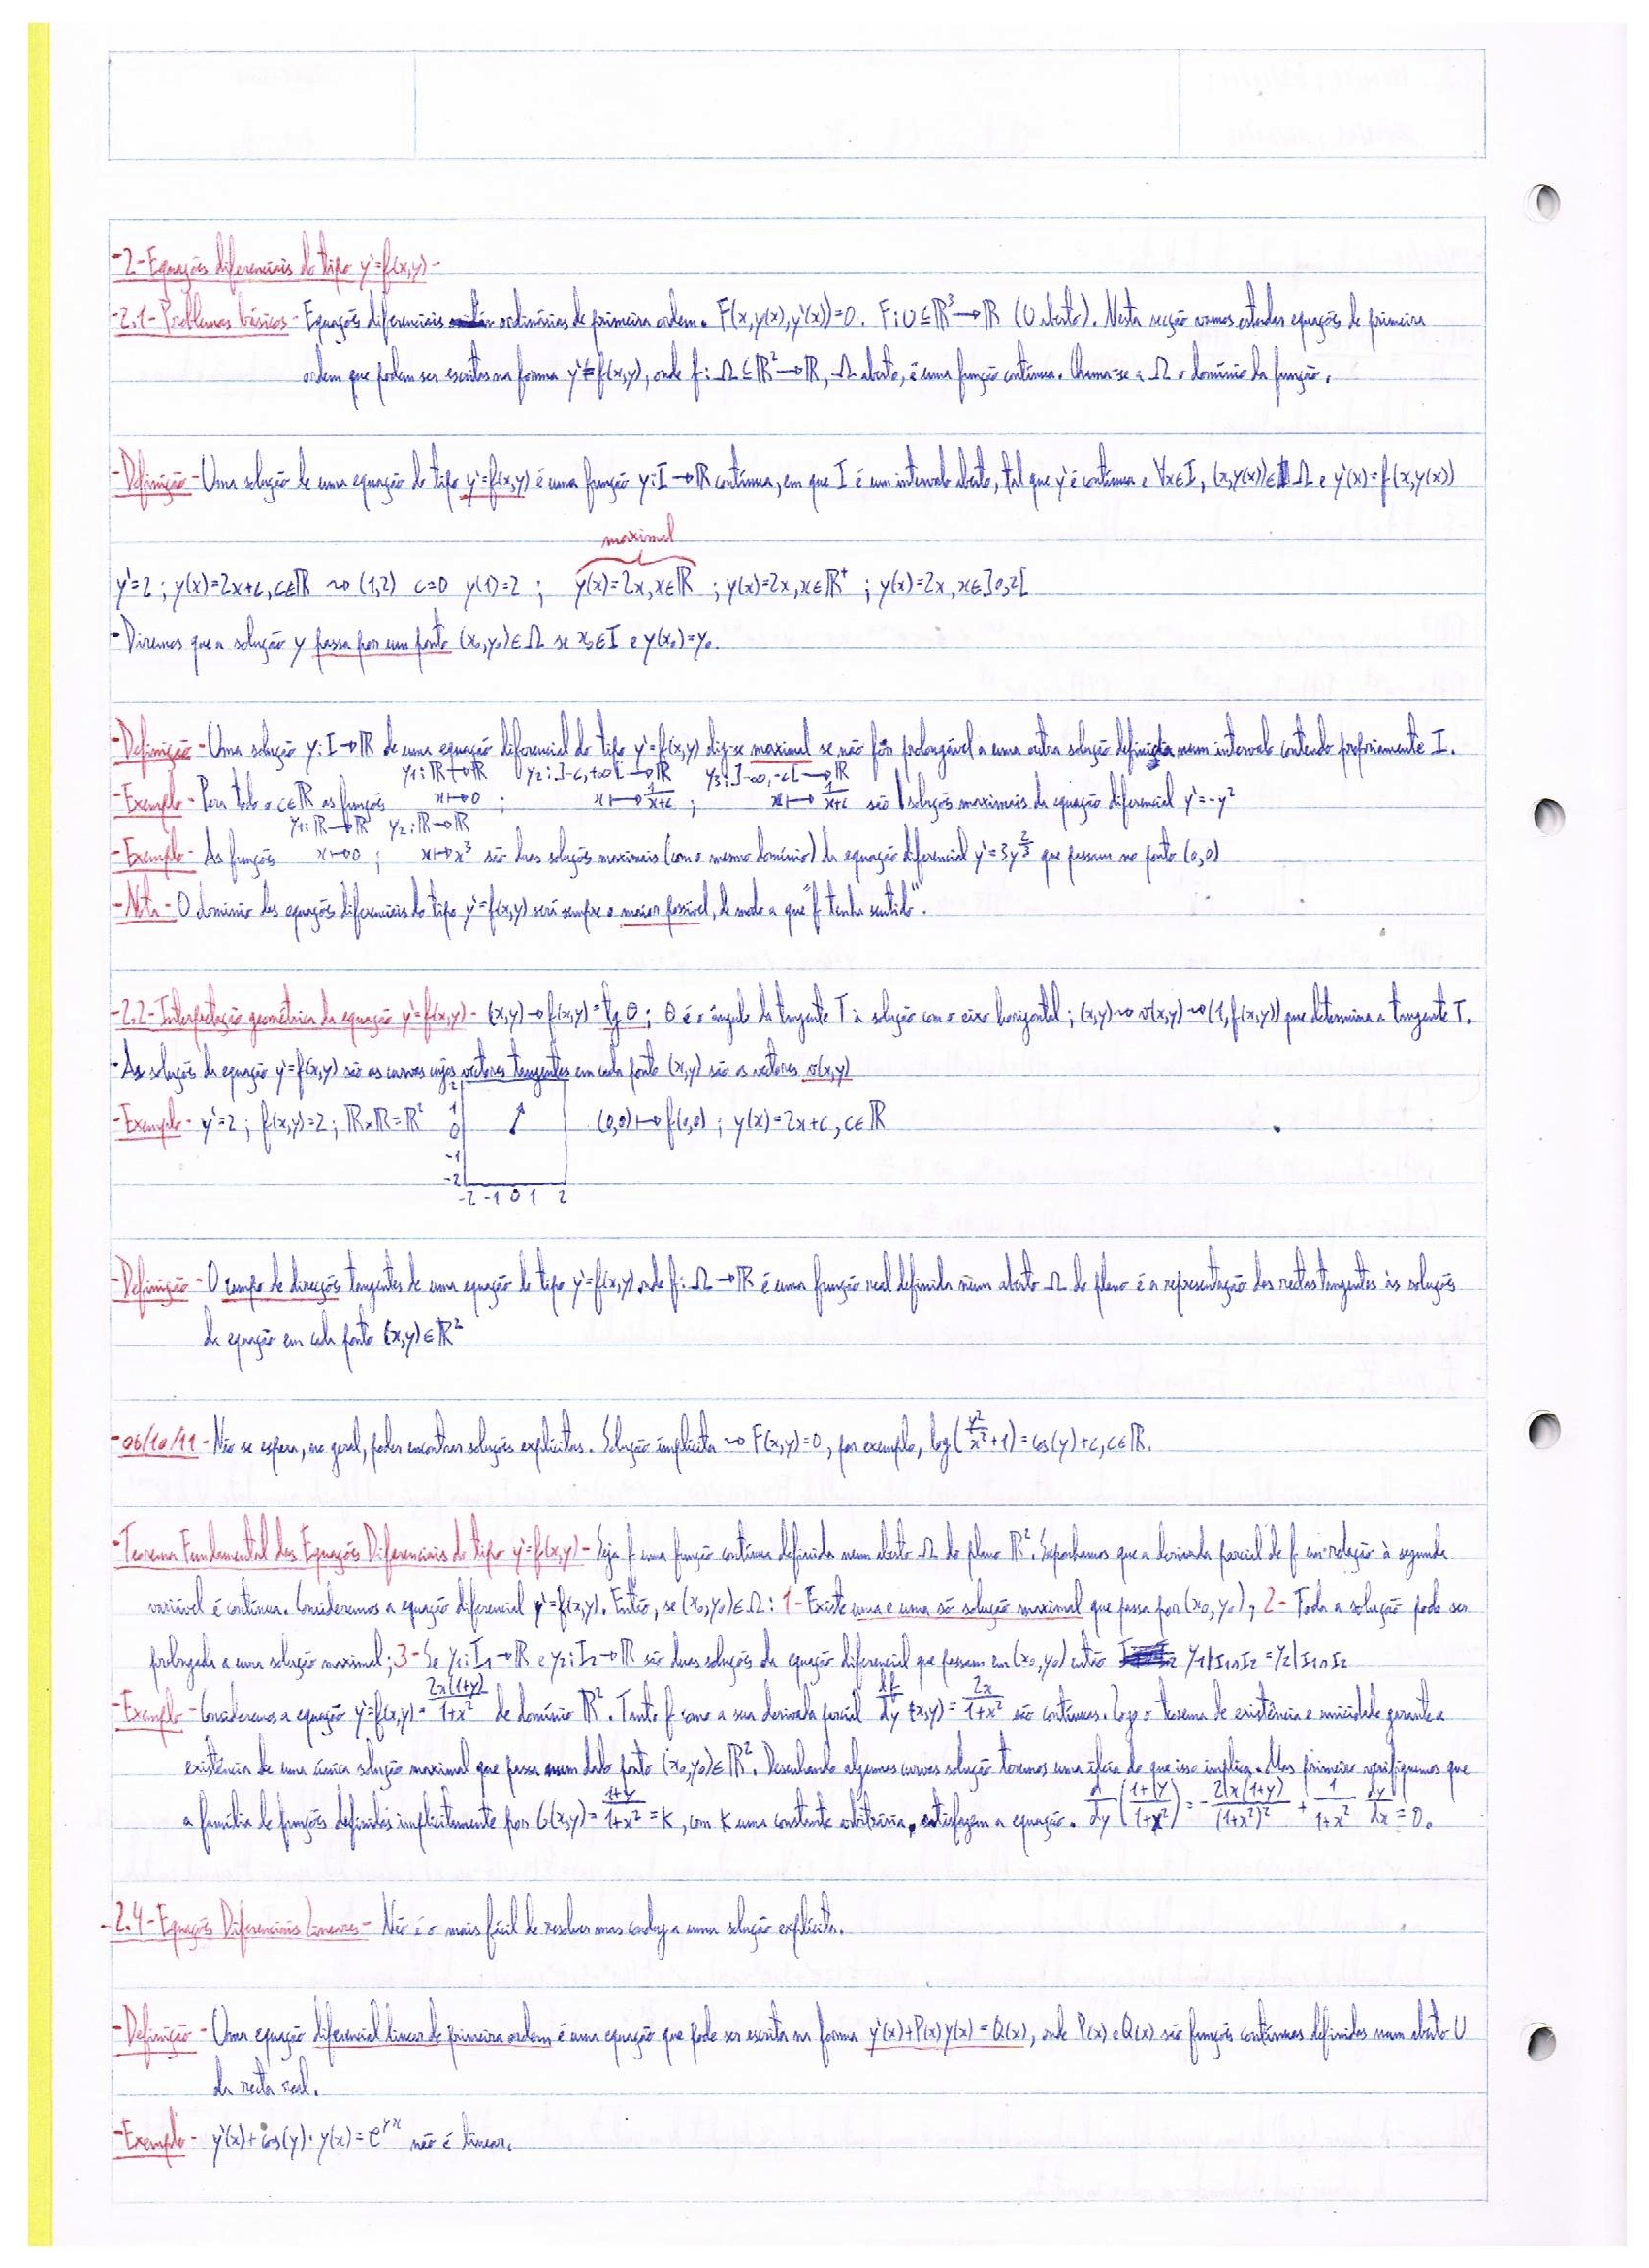 -2-Equações diferenciais do tipo y'=f(x,y)-
-2.1-Problemas básicos- Equações diferenciais ordinárias de primeira ordem. F(x,y(x),y'(x))=0. F:U⊆ℝ³→ℝ (U aberto). Nesta secção vamos estudar equações de primeira
ordem que podem ser escritas na forma y'=f(x,y), onde f:Ω⊆ℝ²→ℝ, Ω aberto, é uma função contínua. Chama-se a Ω o domínio da função.
-Definição-Uma solução de uma equação do tipo y'=f(x,y) é uma função y:I→ℝ contínua, em que I é um intervalo aberto, tal que y' é contínua e ∀x∈I, (x,y(x))∈Ω e y'(x)=f(x,y(x))
maximal
y'=2; y(x)=2x+c, c∈ℝ ⤳ (1,2) c=0 y(1)=2 ; y(x)=2x, x∈ℝ ; y(x)=2x, x∈ℝ⁺ ; y(x)=2x, x∈]0,2[
-Diremos que a solução y passa por um ponto (x₀,y₀)∈Ω se x₀∈I e y(x₀)=y₀.
-Definição-Uma solução y:I→ℝ de uma equação diferencial do tipo y'=f(x,y) diz-se maximal se não fôr prolongável a uma outra solução definida num intervalo contendo propriamente I.
y₁:ℝ→ℝ y₂:]-c,+∞[→ℝ y₃:]-∞,-c[→ℝ
-Exemplo-Para todo o c∈ℝ as funções x↦0 ; x↦1/(x+c) ; x↦1/(x+c) são soluções maximais da equação diferencial y'=-y²
y₁:ℝ→ℝ y₂:ℝ→ℝ
-Exemplo-As funções x↦0 ; x↦x³ são duas soluções maximais (com o mesmo domínio) da equação diferencial y'=3y^(2/3) que passam no ponto (0,0)
-Nota-O domínio das equações diferenciais do tipo y'=f(x,y) será sempre o maior possível, de modo a que "f tenha sentido".
-2.2-Interpretação geométrica da equação y'=f(x,y)- (x,y)→f(x,y)=tg θ; θ é o ângulo da tangente T à solução com o eixo horizontal; (x,y)⤳v(x,y)⤳(1,f(x,y)) que determina a tangente T.
-As soluções da equação y'=f(x,y) são as curvas cujos vectores tangentes em cada ponto (x,y) são os vectores v(x,y)
-Exemplo- y'=2; f(x,y)=2; ℝ×ℝ=ℝ² 2 1 0 -1 -2 (0,0)↦f(0,0) ; y(x)=2x+c, c∈ℝ
-2 -1 0 1 2
-Definição-O campo de direcções tangentes de uma equação do tipo y'=f(x,y) onde f:Ω→ℝ é uma função real definida num aberto Ω do plano é a representação das rectas tangentes às soluções
da equação em cada ponto (x,y)∈ℝ²
-06/10/11-Não se espera, no geral, poder encontrar soluções explícitas. Solução implícita ⤳ F(x,y)=0, por exemplo, log(y²/x²+1)=cos(y)+c, c∈ℝ.
-Teorema Fundamental das Equações Diferenciais do tipo y'=f(x,y)-Seja f uma função contínua definida num aberto Ω do plano ℝ². Suponhamos que a derivada parcial de f em relação à segunda
variável é contínua. Consideremos a equação diferencial y'=f(x,y). Então, se (x₀,y₀)∈Ω: 1-Existe uma e uma só solução maximal que passa por (x₀,y₀); 2-Toda a solução pode ser
prolongada a uma solução maximal; 3-Se y₁:I₁→ℝ e y₂:I₂→ℝ são duas soluções da equação diferencial que passam em (x₀,y₀) então y₁|I₁∩I₂ = y₂|I₁∩I₂
-Exemplo-Consideremos a equação y'=f(x,y)=2x(1+y)/(1+x²) de domínio ℝ². Tanto f como a sua derivada parcial df/dy (x,y)=2x/(1+x²) são contínuas. Logo o teorema de existência e unicidade garante a
existência de uma única solução maximal que passa num dado ponto (x₀,y₀)∈ℝ². Desenhando algumas curvas solução teremos uma ideia do que isso implica. Mas primeiro verifiquemos que
a família de funções definidas implicitamente por G(x,y)=(1+y)/(1+x²)=K, com K uma constante arbitrária, satisfazem a equação. d/dy((1+y)/(1+x²))=-2x(1+y)/(1+x²)²+1/(1+x²) dy/dx=0.
-2.4-Equações Diferenciais Lineares- Não é o mais fácil de resolver mas conduz a uma solução explícita.
-Definição-Uma equação diferencial linear de primeira ordem é uma equação que pode ser escrita na forma y'(x)+P(x)y(x)=Q(x), onde P(x) e Q(x) são funções contínuas definidas num aberto U
da recta real.
-Exemplo- y'(x)+cos(y)·y(x)=e^(yx) não é linear.